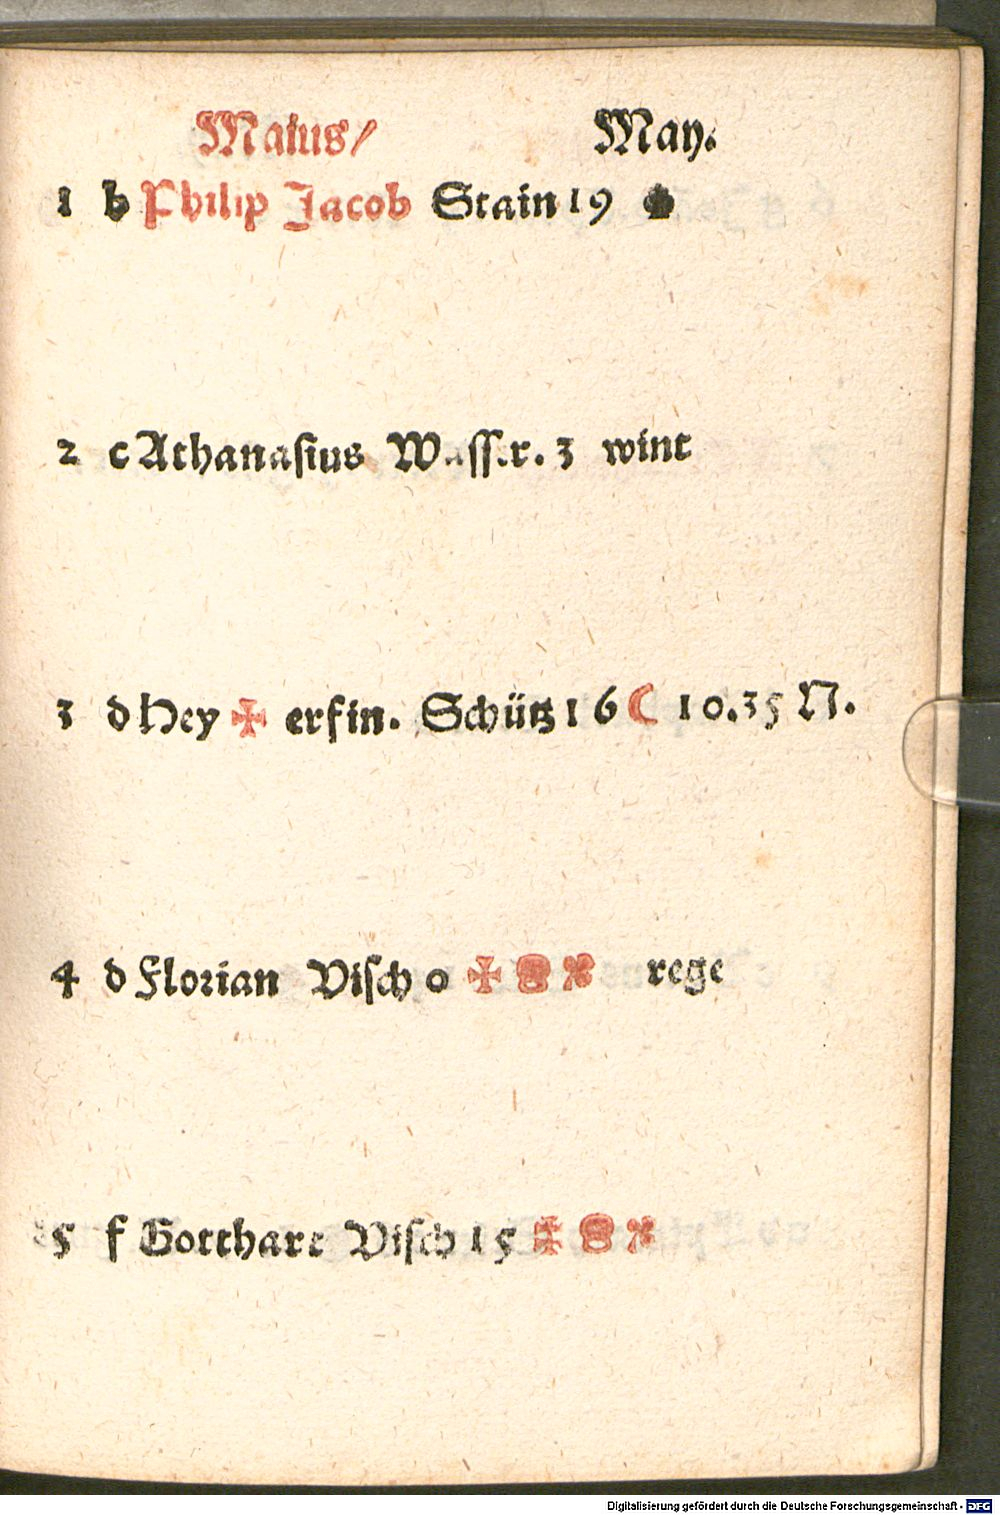 Maius/ May.
1 b Philip Jacob Stain 19
2 c Athanasius Wass.r. 3 wint
3 d Hey ✠ erfin. Schütz 16 ☾ 10.35 N.
4 d Florian Visch 0 ✠ rege
5 f Gotthart Visch 15 ✠
Digitalisierung gefördert durch die Deutsche Forschungsgemeinschaft - DFG